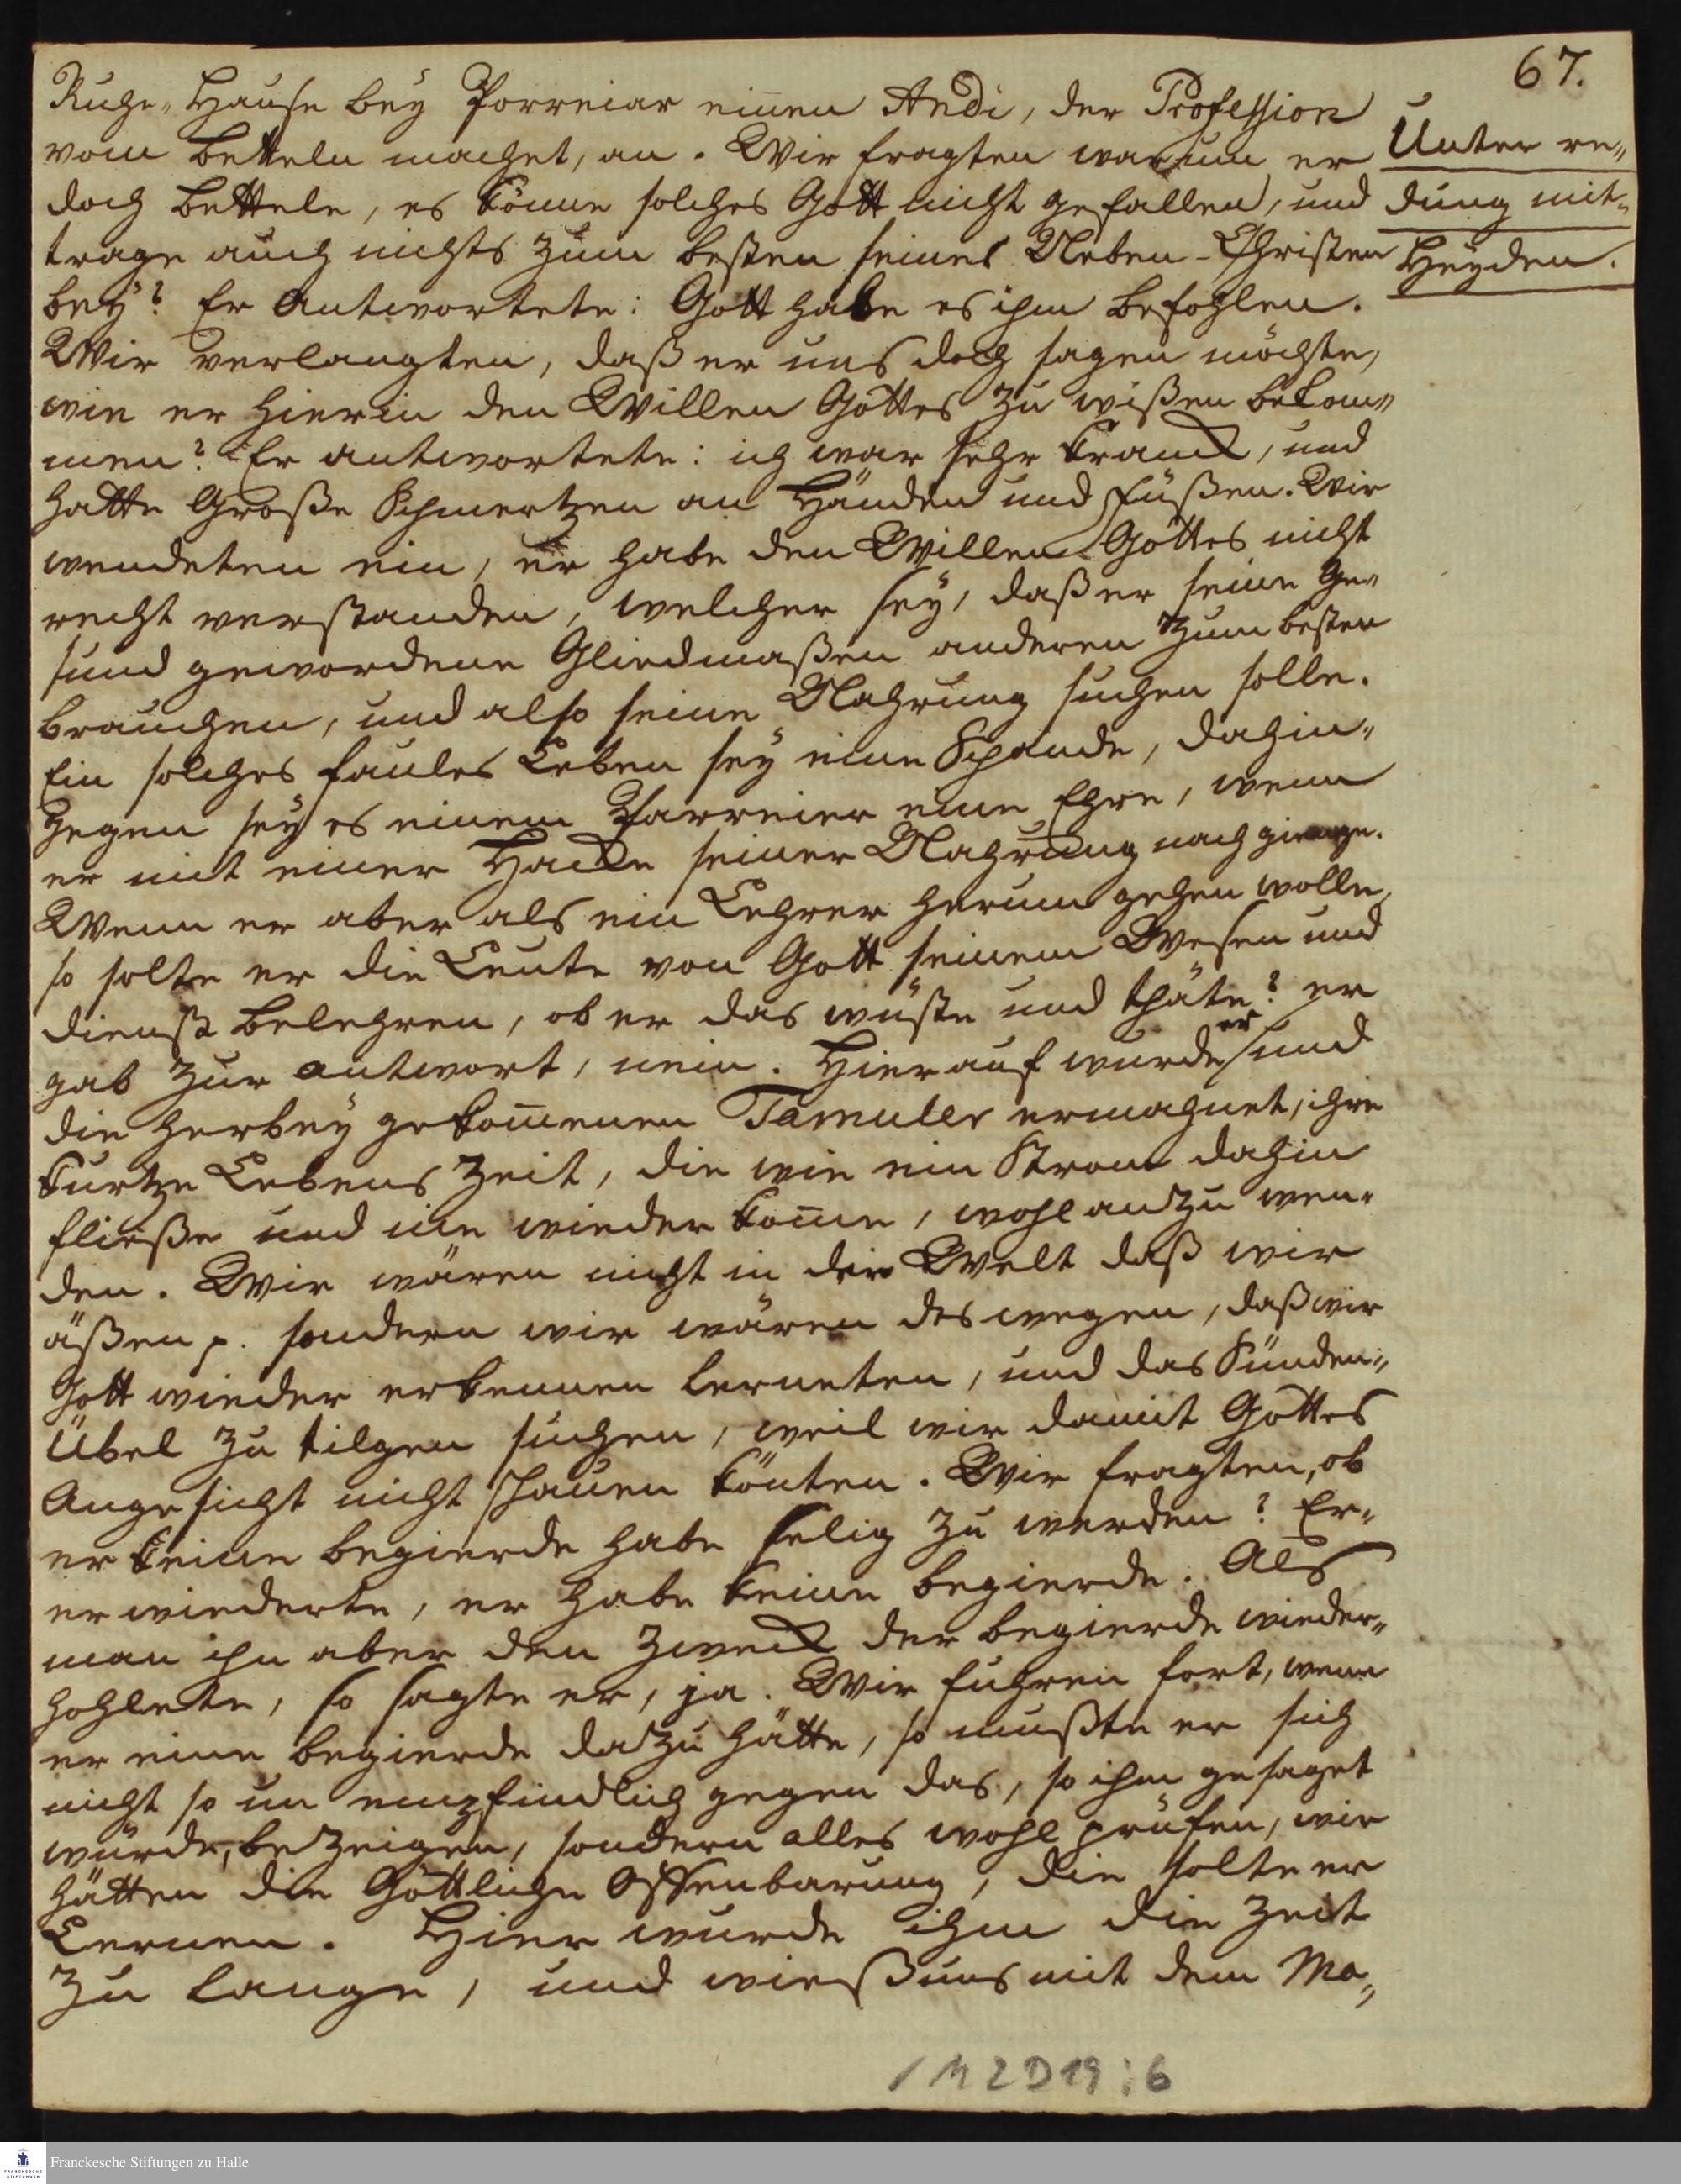 67.
Ruhe-Hause bey Porreiar einen Andi, der Profession
vom betteln machet, an. Wir fragten warum er
doch bettele, es könne solches Gott nicht gefallen, und
trage auch nichts zum besten seines Neben-Christen
bey? Er antwortete: Gott habe es ihm befohlen.
Wir verlangten, daß er uns doch sagen möchte,
wie er hierin den Willen Gottes zu wißen bekom-
men? Er antwortete: ich war sehr kranck, und
hatte Große Schmertzen an Händen und Füßen. Wir
wendeten ein, er habe den Willen Gottes nicht
recht verstanden, welcher sey, daß er seine Ge-
sund gewordene Gliedmaßen anderen zum besten
brauchen, und also seine Nahrung suchen solle.
Ein solches faules Leben sey eine Schande, dahin-
gegen sey es einem Parreier eine Ehre, wenn
er mit einer Hacke seiner Nahrung nach gienge.
Wenn er aber als ein Lehrer herum gehen wolle,
so solte er die Leute von Gott seinem Wesen und
dienst belehren, ob er das wüste und thäte? er
gab zur antwort, nein. Hierauf wurde er und
die herbey gekom̄enen Tamuler ermahnet, ihre
kurtze Lebens Zeit, die wie ein Strom dahin
fließe und nie wieder kom̄e, wohl anzu wen-
den. Wir wären nicht in der Welt daß wir
äßen p. sondern wir wären deswegen, daß wir
Gott wieder erkennen lerneten, und das Sünden-
Übel zu tilgen suchen, weil wir damit Gottes
Angesicht nicht schauen könten. Wir fragten, ob
er keine begierde habe selig zu werden? Er-
erwiederte, er habe keine begierde. Als
man ihn aber den Zweck der begierde wieder-
hohlete, so sagte er, ja. Wir fuhren fort, wenn
er eine begierde dazu hätte, so mußte er sich
nicht so un empfindlich gegen das, so ihm gesaget
würde, bezeigen, sondern alles wohl prüfen, wir
hätten die Göttliche Offenbarung, die solte er
Lernen. Hier wurde ihm die Zeit
zu lange, und wieß uns mit dem Ma-
Unter re-
dung mit-
Heyden.
1 M 2 D 19 : 6
Franckesche Stiftungen zu Halle
FRANCKESCHE
STIFTUNGEN